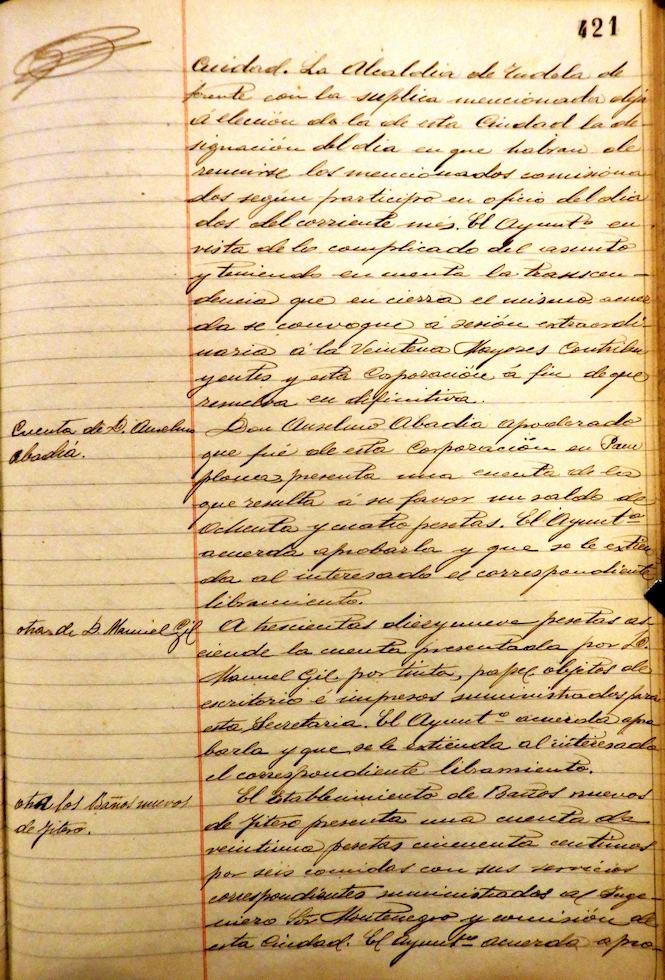 421
Ciudad. La Alcaldia de Tudela de
frente con la suplica mencionada deja
á elección de la de esta Ciudad la de-
signación del dia en que habran de
reunirse los mencionados comisiona
dos segun participo en oficio del dia
dos del corriente mes. El Ayunt.º en
vista de lo complicado del asunto
y teniendo en cuenta la trascen-
dencia que en cierra el mismo acuer
da se convoque á sesión extraordi
naria á la Veintena Mayores Contribu
yentes y esta Corporación á fin de que
resuelva en definitiva.
Cuenta de D. Anselmo
Abadiá.
Don Anselmo Abadia apoderado
que fué de esta Corporación en Pam
plona, presenta una cuenta de la
que resulta á su favor un saldo de
ochenta y cuatro pesetas. El Ayunt.º
acuerda aprobarla y que se le extien
da al interesado el correspondiente
libramiento.
otra de D. Manuel Gil
A trescientas diez y nueve pesetas as
ciende la cuenta presentada por D.
Manuel Gil por tinta, papel objetos de
escritorio é impresos suministrados para
esta Secretaria. El Ayunt.º acuerda apro
barla y que se le extienda al interesado
el correspondiente libramiento.
otra los Baños nuevos
de Fitero.
El Establecimiento de Baños nuevos
de Fitero presenta una cuenta de
veintiuna pesetas cincuenta centimos
por seis comidas con sus servicios
correspondientes suministrados al Inge-
niero Sor Montenegro y comisión de
esta Ciudad. El Ayunt.º acuerda apro